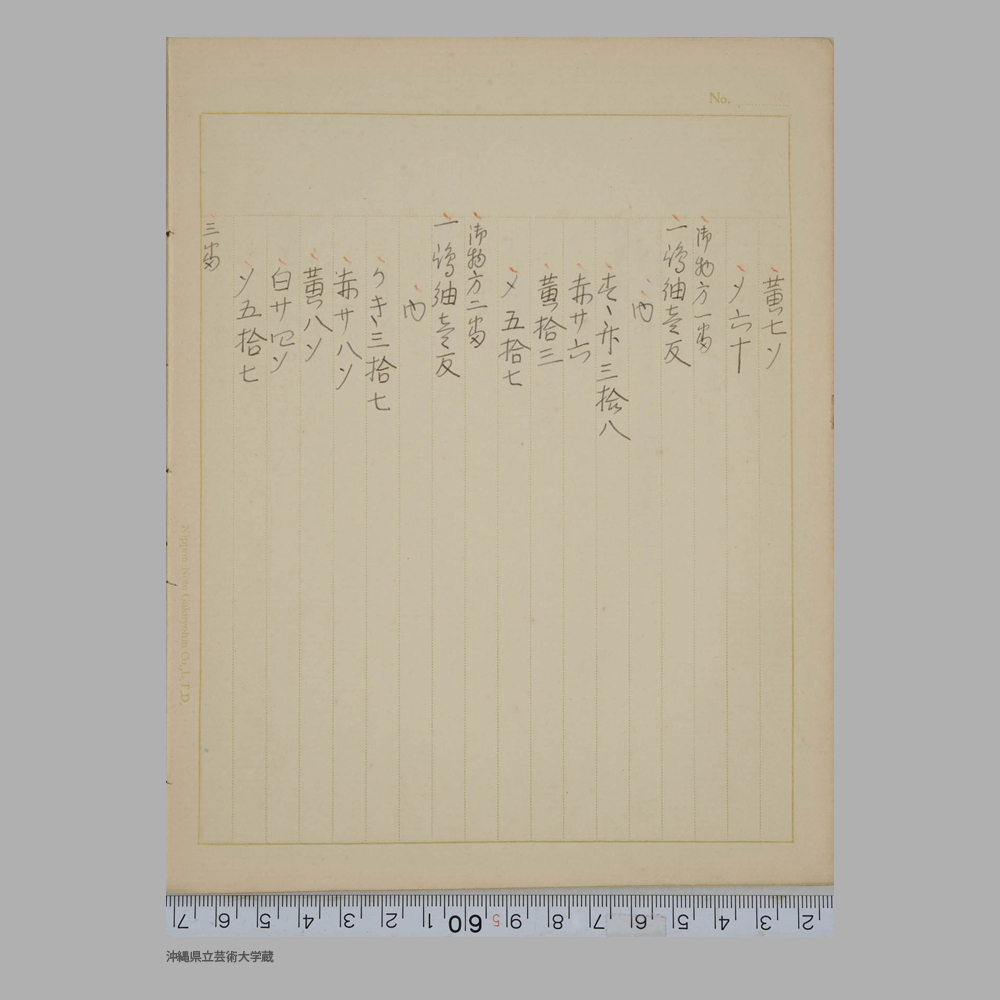 No.
黄七ツ
〆六十
御物方一番
一嶋紬壱反
内
三拾八
赤廿六
黄拾三
〆五拾七
御物方二番
一嶋紬壱反
内
うき三拾七
赤廿八ツ
黄八ツ
白廿四ツ
〆五拾七
三番
Nippon Note Gakuyohin Co., LTD.
7 6 5 4 3 2 1 60 5 9 8 7 6 5 4 3 2
沖縄県立芸術大学蔵